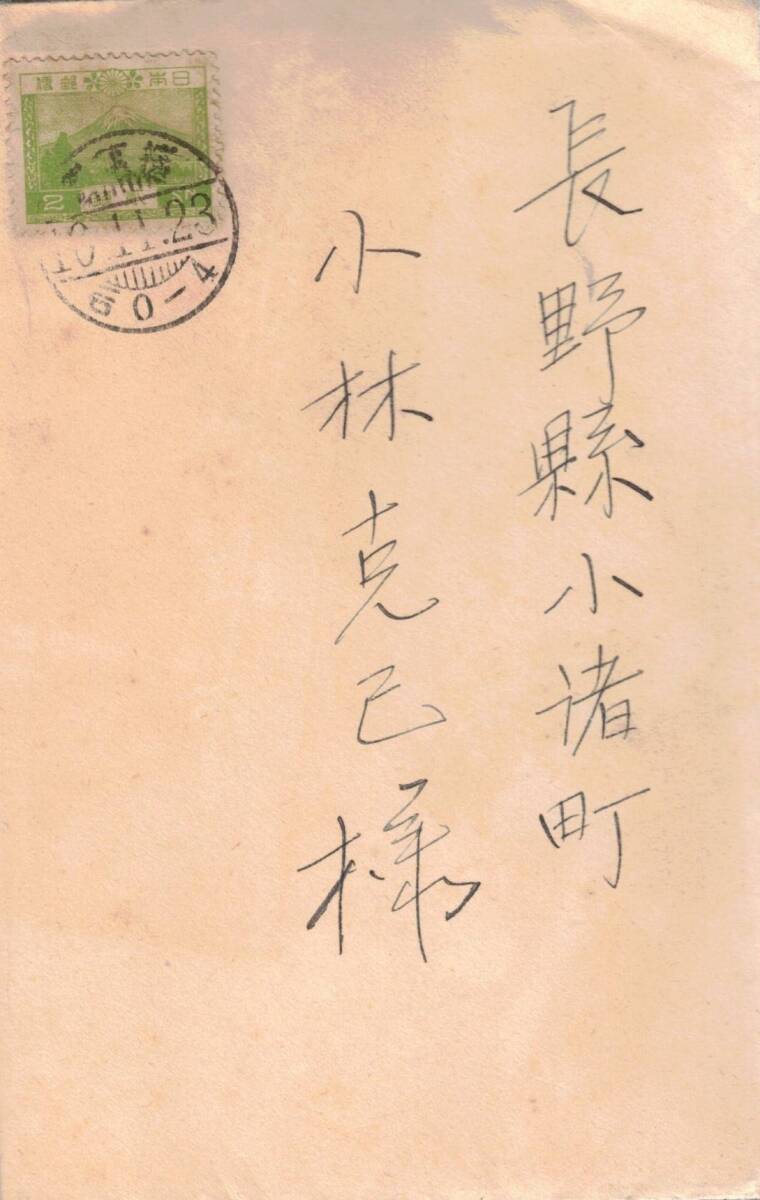 長野縣小諸町
小林克己様
日本郵便
2
10.11.23
0-4